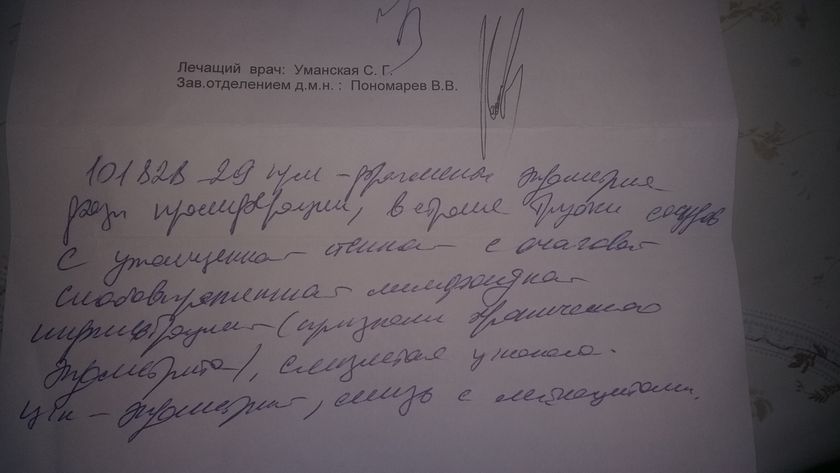 Лечащий врач: Уманская С. Г.
Зав.отделением д.м.н. : Пономарев В.В.
фрагменты эндометрия
фазы пролиферации, в строме клубки сосудов
с утолщенной стенкой с очаговой
слабовыраженной лимфоидной
инфильтрацией (признаки хронического
эндометрита),
ц/к - эндометрий, слизь с лейкоцитами.